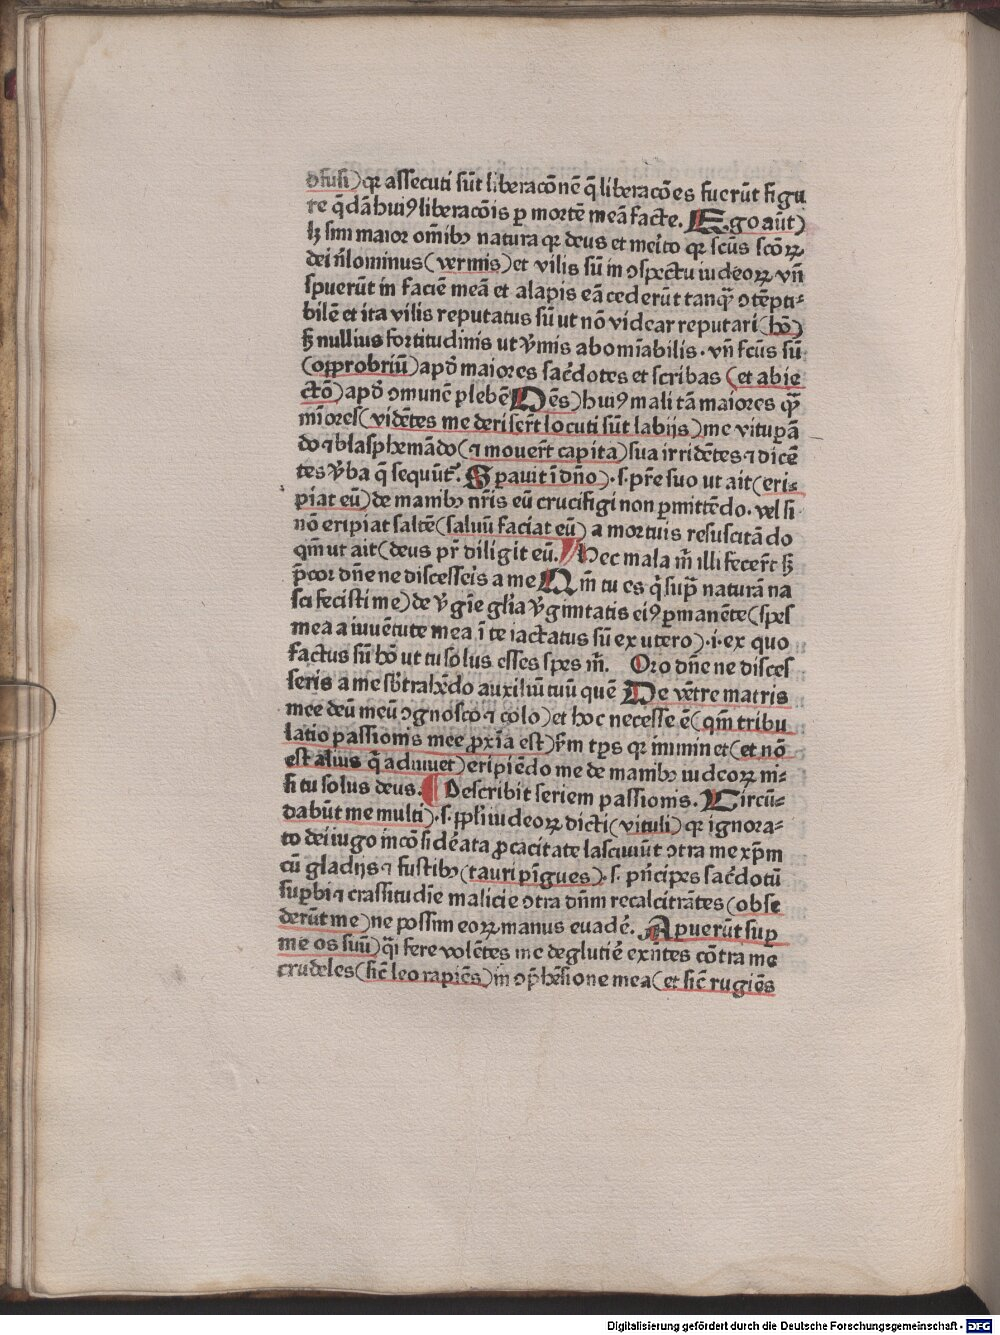 ↄfusi) qꝛ assecuti sūt liberacōnē q̄ liberacōes fuerūt figu
re q̄dā huiꝰ liberacōis ꝑ mortē meā facte. Ego aūt)
lꝫ sim maior om̄ibꝫ natura qꝛ deus et meito qꝛ scūs scōꝝ
dei n̄lominus (vermis) et vilis sū in ↄspectu iudeoꝝ vn̄
spuerūt in faciē meā et alapis eā cederūt tanqͣ ↄtēpti⸗
bilē et ita vilis reputatus sū ut nō videar reputari (hō)
sꝫ nullius fortitudinis ut v̄mis abomīabilis. vn̄ fcūs sū
(opprobriū) apd̄ maiores sac̄dotes et scribas (et abie
ctō) apd̄ ↄmunē plebē Oēs) huiꝰ mali tā maiores qͣ
mīores (vidētes me deriserūt locuti sūt labijs) me vitupā
do ⁊ blasphemādo (⁊ moverūt capita) sua irridētes ⁊ dicē
tes v̄ba q̄ sequūt᷑. Spauit ī dn̄o) .s. pr̄e suo ut ait (eri⸗
piat eū) de manibꝫ nr̄is eū crucifigi non ꝑmittēdo. vel si
nō eripiat saltē (saluū faciat eū) a mortuis resuscitādo
qm̄ ut ait (deus pr̄ diligit eū. Hec mala m̄ illi fecerūt sꝫ
p̄cor dn̄e ne discesseris a me Qm̄ tu es q̇ supͣ naturā na
sci fecisti me) de v̄gīe glīa v̄ginitatis eiꝰ ꝑmanēte (spes
mea a iuuētute mea ī te iactatus sū ex utero) .i. ex quo
factus sū hō ut tu solus esses spes m̄. Oro dn̄e ne disces
seris a me sb̄trahēdo auxiliū tuū quē De vētre matris
mee deū meū ↄgnosco ⁊ colo) et hoc necesse ē (qm̄ tribu
latio passionis mee ꝓxīa est) ẜm tp̄s qꝛ imminet (et nō
est alius q̇ adiuuet) eripiēdo me de manibꝫ iudeoꝝ ni⸗
si tu solus deus. ¶ Describit seriem passionis. Circū⸗
dabūt me multi) .s. ppl̄i iudeoꝝ dicti (vituli) qꝛ ignora⸗
to dei iugo incōsideata ꝓcacitate lasciuiūt ↄtra me xp̄m
cū gladijs ⁊ fustibꝫ (tauri pīgues) .s. pn̄cipes sac̄dotū
suꝑbi ⁊ crassitudīe malicie ↄtra dn̄m recalcitrātes (obse
derūt me) ne possim eoꝝ manus euadē. Apuerūt suꝑ
me os suū) q̄si fere volētes me deglutiē exn̄tes cōtra me
crudeles (sic̄ leo rapiēs) in ↄp̄hēsione mea (et sic̄ rugiēs